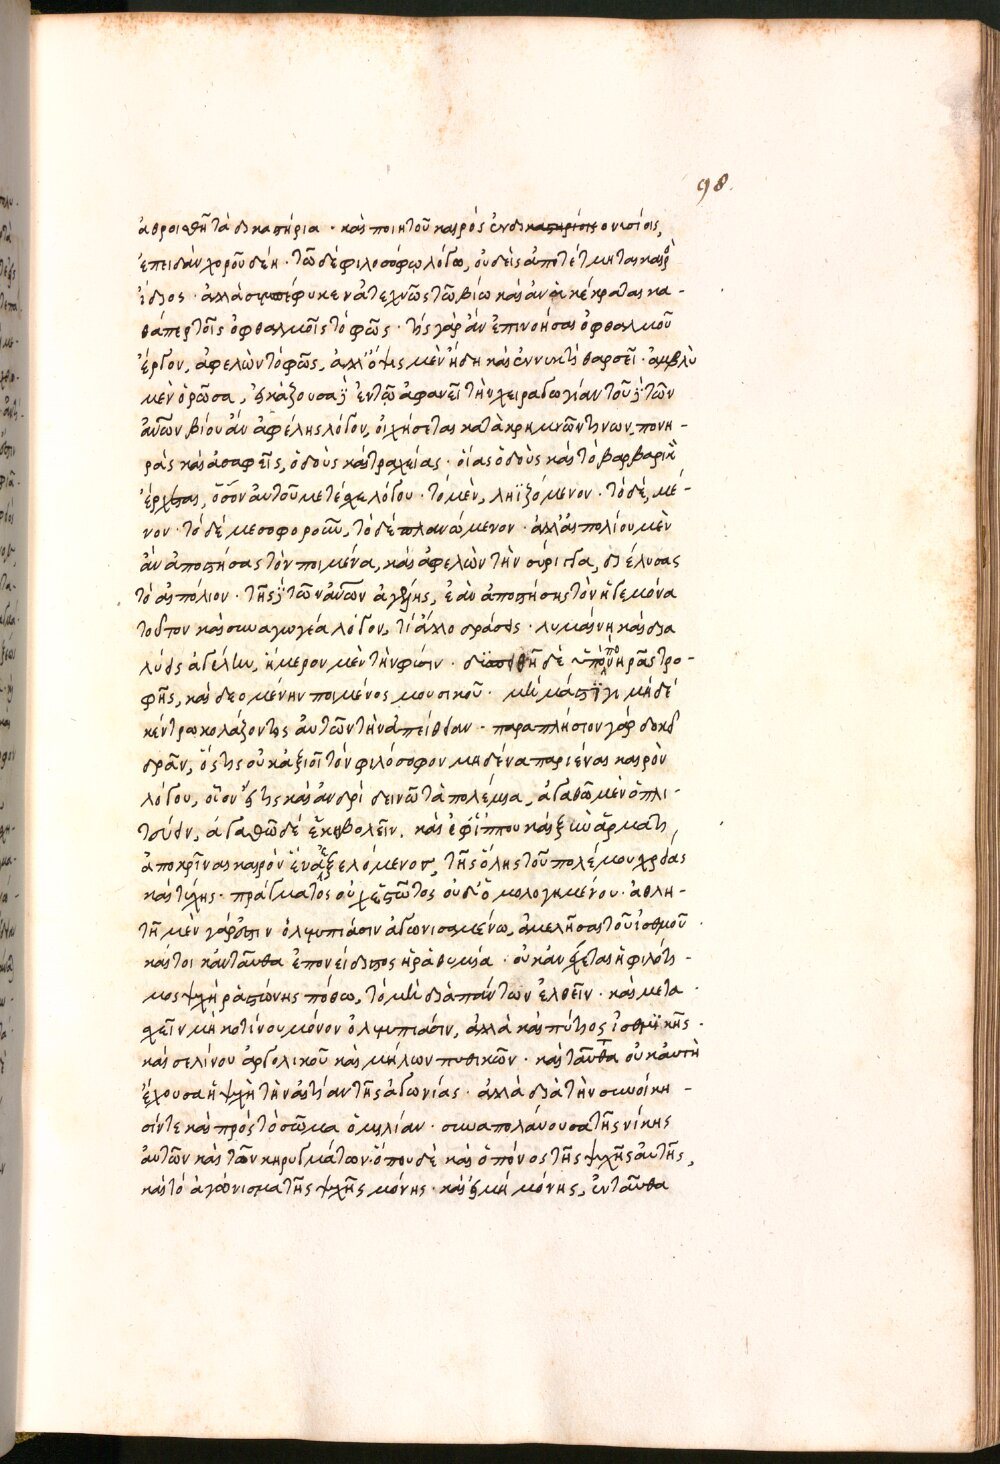 98.
ἀθροισθῆ τὰ δικαστήρια · καὶ ποιητοῦ καιρός ἐν διονυσίοις,
ἐπειδὰν χοροῦ δέη · τῶ δέ φιλοσόφω λόγω, οὐδεὶς ἀποτέτμηται καιρὸς
ἴδιος · ἀλλὰ συμπέφυκεν ἀτεχνῶς τῶ βίω καὶ ἀνακέκραται κα-
θάπερ τοῖς ὀφθαλμοῖς τὸ φῶς · τίς γὰρ ἂν ἐπινοήσαι ὀφθαλμοῦ
ἔργον, ἀφελὼν τὸ φῶς, ἀλλ' ὄψις μὲν ἤδη καὶ ἐν νυκτὶ θαρσεῖ · ἀμβλὺ
μὲν ὁρῶσα, εἰκάζουσα
ἐν τῶ ἀφανεῖ τὴν χειραγωγίαν τοῦ
τῶν
ἀνων βίου ἂν ἀφέλης λόγον, οἰχήσεται κατὰ κρημνῶν τινων, πονη-
ρὰς καὶ ἀσαφεῖς, ὁδοὺς καὶ τραχείας · οἵας ὁδοὺς καὶ τὸ βαρβαρικὸν
ἔρχεται, ὅσον αὐτοῦ μετέχει λόγου · τὸ μὲν, ληϊζόμενον · τὸ δὲ, μέ-
νον · τὸ δέ μεσοφοροῦν, τὸ δέ πλανώμενον · ἀλλ' αἰπολίου μὲν
ἂν ἀποστήσας τὸν ποιμένα, καὶ ἀφελὼν τὴν σύριγγα, διέλυσας
τὸ αἰπόλιον · τῆς
τῶν ἀνων ἀγέλης, ἐὰν ἀποστήσης τὸν ἡγεμόνα
τοῦτον καὶ συναγωγέα λόγον, τί ἄλλο δράσεις · λυμαίνη καὶ δια
λύεις ἀγέλην, ἥμερον μὲν τὴν φύσιν ·
δὲ ὑπὸ πονηρᾶς τρο-
φῆς, καὶ δεομένην ποιμένος μουσικοῦ · μὴ μάστιγι μηδέ
κέντρω κολάζοντος αὐτῶν τὴν ἀπείθειαν · παραπλήσιον γάρ δοκεῖ
δρᾶν, ὅστις οὐκ ἀξιοῖ τὸν φιλόσοφον μηδένα παριέναι καιρὸν
λόγου, οἷον εἴ τις καὶ ἀνδρί δεινῶ τὰ πολέμια, ἀγαθῶ μὲν ὁπλι-
τεύειν, ἀγαθῶ δέ ἑκηβολεῖν, καὶ ἐφ' ἵππου καὶ ξὺν ἅρματι,
ἀποκρῖναι καιρὸν ἕνα ἐξελόμενος, τῆς ὅλης τοῦ πολέμου χρείας
καὶ τύχης · πράγματος οὐχ ἑστῶτος οὐδ' ὁμολογημένου · ἀθλη-
τῆ μὲν γάρ ἔστιν ὀλυμπιάσιν ἀγωνισαμένω, ἀμελῆσαι τοῦ ἰσθμοῦ ·
καίτοι κἀνταῦθα ἐπονείδιστος ἡ ῥαθυμία · οὐκ ἀνέχεται ἡ φιλότι-
μος ψυχὴ ῥαστώνης πόθω, τὸ μὴ διὰ πάντων ἐλθεῖν · καὶ μετα
χεῖν μὴ κοτίνου μόνον ὀλυμπιάσιν, ἀλλὰ καὶ πίτυος ἰσθμικῆς ·
καὶ σελίνου ἀργολικοῦ καὶ μήλων πυθικῶν · καὶ ταῦτα οὐκ αὐτὴ
ἔχουσα ἡ ψυχὴ τὴν αἰτίαν τῆς ἀγωνίας · ἀλλὰ διὰ τὴν συνοίκη-
σίν τε καὶ πρὸς τὸ σῶμα ὁμιλίαν · συναπολαύουσα τῆς νίκης
αὐτῶν καὶ τῶν κηρυγμάτων · ὅπου δὲ καὶ ὁ πόνος τῆς ψυχῆς αὐτῆς,
καὶ τὸ ἀγώνισμα τῆς ψυχῆς μόνης · καὶ ἡ νίκη μόνης, ἐνταῦθα